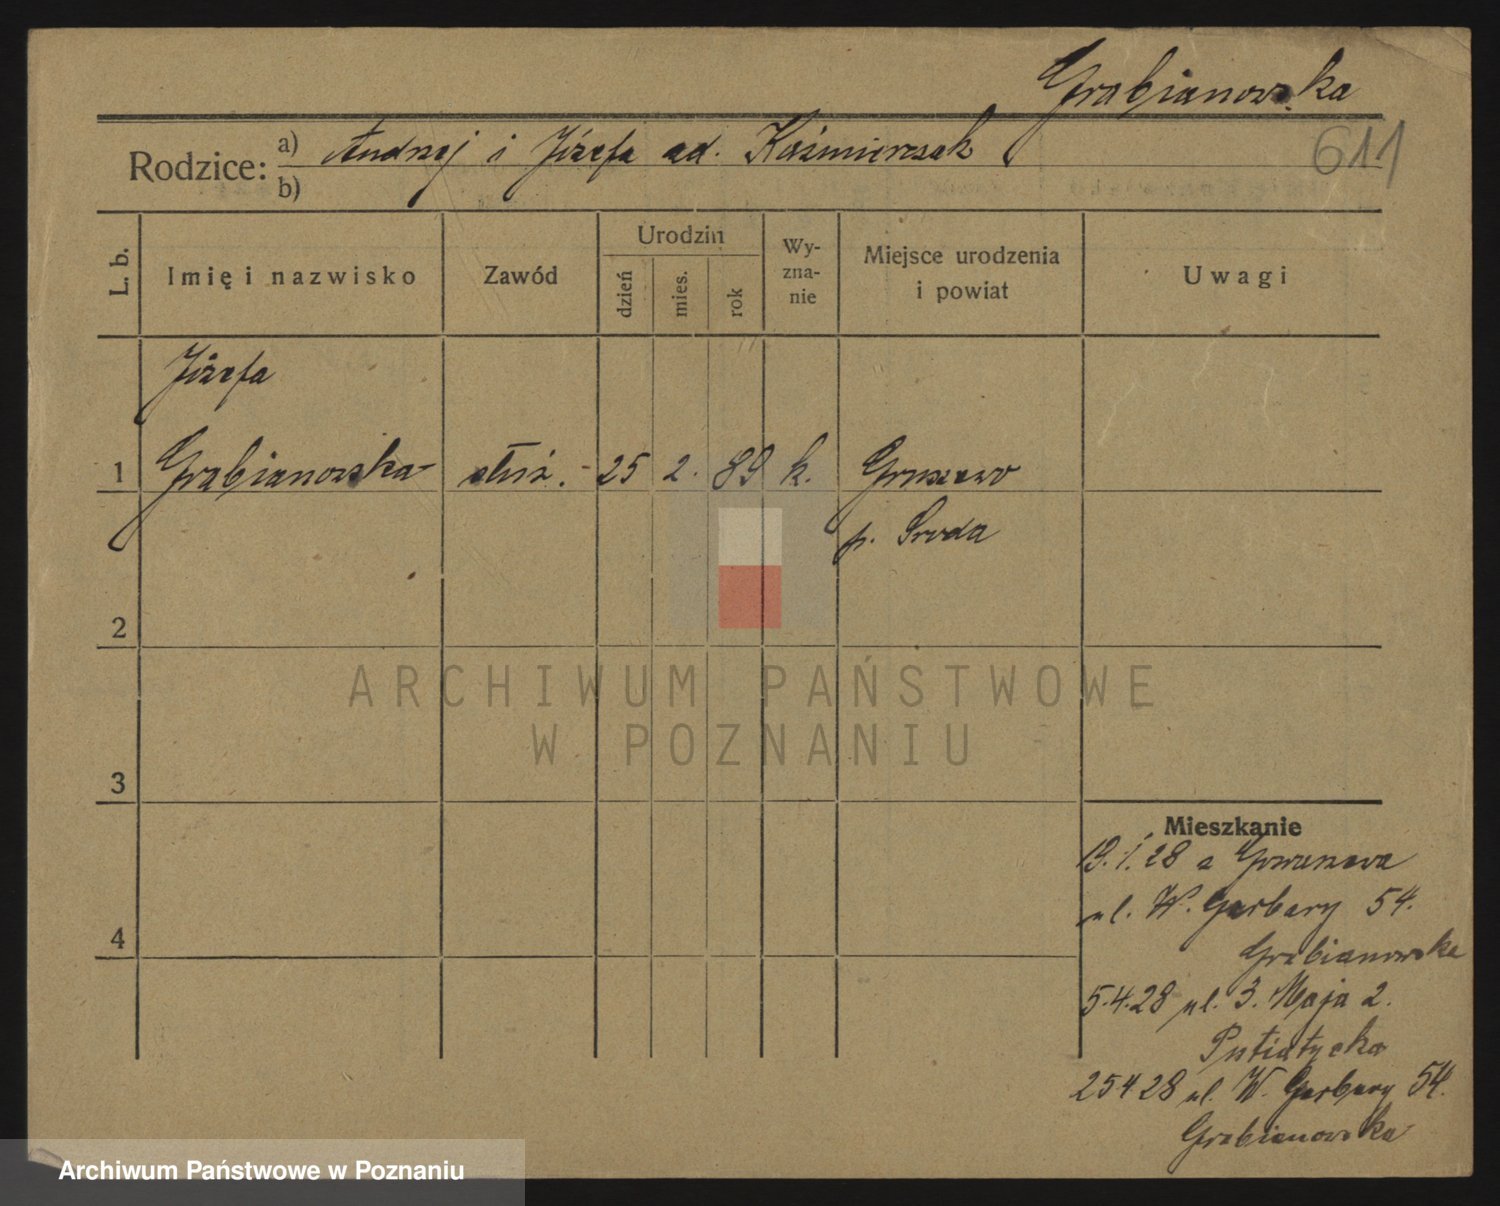 Grabianowska
611
Rodzice: a) Andrzej i Józefa ad. Kaźmierczak
b)
L. b.
Imię i nazwisko
Zawód
Urodzin
dzień
mies.
rok
Wy-
zna-
nie
Miejsce urodzenia
i powiat
Uwagi
Józefa
1 Grabianowska służ. 25 2. 89 k. Gruszewo
p. Sroda
2
ARCHIWUM PAŃSTWOWE
W POZNANIU
3
Mieszkanie
19.1.28 a
ul. W. Garbary 54.
4
Grabianowska
5.4.28 ul. 3. Maja 2.
25 4 28 ul. W. Garbary 54.
Grabianowska
Archiwum Państwowe w Poznaniu